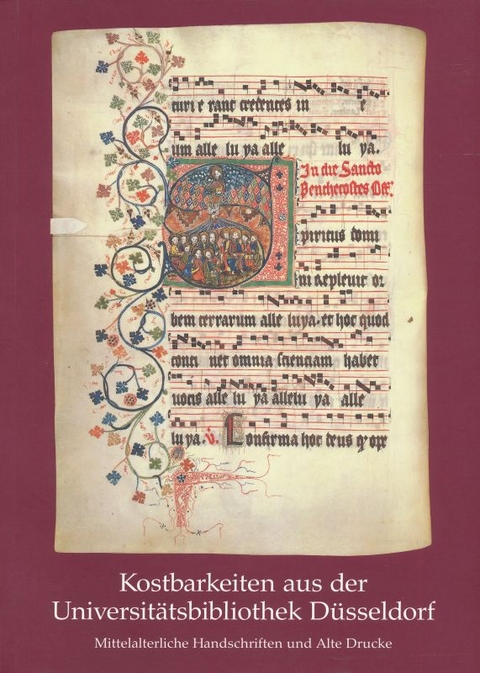 curi e rant credentes in e
um alle lu ya alle lu ya.
In die Sancto
Penthecostes Off.
S
piritus domi
ni repleuit or
bem terrarum alle luya. et hoc quod
conti net omnia scienciam habet
uocis alle lu ya allelu ya alle
lu ya. V. Confirma hoc deus q̄ ope
Kostbarkeiten aus der
Universitätsbibliothek Düsseldorf
Mittelalterliche Handschriften und Alte Drucke